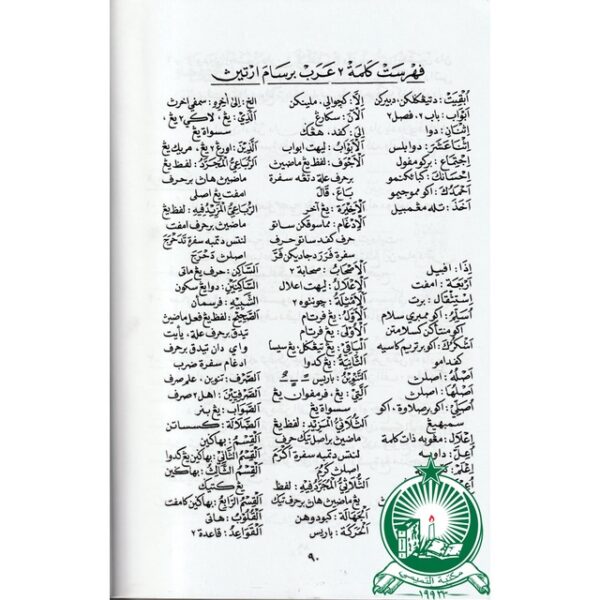 فهرست كلمة ٢ عرب برسام ارتيڽ
أَبْقَيْتَ : دتيڠݢلكن، دبيركن
أَبْوَابْ : باب ٢، فصل ٢
إِثْنَانِ : دوا
إِثْنَا عَشَرَ : دوابلس
إِجْتِمَاعْ : بركومڤول
أَحْمَدُكَ : اكو مموجيمو
أَخَذَ : تله مڠمبيل
إِذَا : اڤبيل
أَرْبَعَة : امڤت
إِسْتِثْقَال : برت
أُسَلِّمُ : اكو ممبري سلام
أَشْكُرُكَ : اكو برتريم كاسيه
كڤدامو
أَصْلُهُ : اصلڽ
أَصْلُهَا : اصلڽ
أُصَلِّي : اكو برصلاوة، اكو
سمبهيڠ
إِعْلَال : مڠوبه ذات كلمة
إِلَّا : كچوالي، ملينكن
اَلْآنَ : سكارڠ
إِلَى : كڤد، هڠݢ
اَلْأَبْوَابُ : ليهت ابواب
اَلْأَجْوَف : لفظ يڠ ماضيڽ
برحرف علة دتڠه سڤرة
بَاعَ، قَالَ
اَلْأَخِيْرَة : يڠ آخر
اَلْإِدْغَام : مماسوقكن ساتو
حرف كڤد ساتو حرف
سڤرة فَرَرَ دجاديكن فَرَّ
اَلْأَصْحَابُ : صحابة ٢
اَلْإِعْلَال : ليهت اعلال
اَلْأَمْثِلَة : چونتوه ٢
اَلْأَوَّلُ : يڠ ڤرتام
اَلْأُوْلَى : يڠ ڤرتام
اَلْبَاقِي : يڠ تيڠݢل، يڠ سيسا
اَلثَّانِيَة : يڠ كدوا
اَلتَّنْوِيْنُ : باريس ـًـٍـٌ
اَلَّتِيْ : يڠ، ڤرمڤوان يڠ
سسواة يڠ
اَلثُّلَاثِيُّ الْمَزِيْد : لفظ يڠ
ماضيڽ براصل تيݢ حرف
لنتس دتمبه سڤرة أَكْرَمَ
اصلڽ كَرُمَ
اَلثُّلَاثِيُّ الْمُجَرَّد : لفظ يڠ
ماضيڽ هاڽ برحرف تيݢ
اَلْجَهَالَة : كبودوهن
اَلْحَرَكَة : باريس
الخ : إلى آخره، سمڤي اخيرڽ
اَلَّذِيْ : يڠ، لاكي ٢ يڠ
سسواة يڠ
اَلَّذِيْنَ : اورڠ ٢ يڠ، مريك يڠ
اَلرُّبَاعِيُّ الْمُجَرَّدُ : لفظ يڠ
ماضيڽ هاڽ برحرف
امڤت يڠ اصلي
اَلرُّبَاعِيُّ الْمَزِيْدُ فِيْهِ : لفظ يڠ
ماضيڽ برحرف امڤت
لنتس دتمبه سڤرة تَدَحْرَجَ
اصلڽ دَحْرَجَ
اَلسَّاكِنُ : حرف يڠ ماتي
اَلسَّاكِنَيْنِ : دوا يڠ سكون
اَلشَّبِيْه : ڤرسمان
اَلصَّحِيْح : لفظ يڠ فعل ماضيڽ
تيدق برحرف علة، يأيت
واي دان تيدق برحرف
ادغام سڤرة ضرب
اَلصَّرْف : تنوين، علم صرف
اَلصَّرْفِيِّيْنَ : اهل ٢ صرف
اَلصَّوَاب : يڠ بنر
اَلضَّلَالَة : كسساتن
اَلْقِسْمُ : بهاݢين
اَلْقِسْمُ الثَّانِي : بهاݢين يڠ كدوا
اَلْقِسْمُ الثَّالِثُ : بهاݢين
يڠ كتيݢ
اَلْقِسْمُ الرَّابِعُ : بهاݢين كامڤت
اَلْقُلُوْبُ : هاتي
اَلْقَوَاعِدُ : قاعدة ٢
٩٠